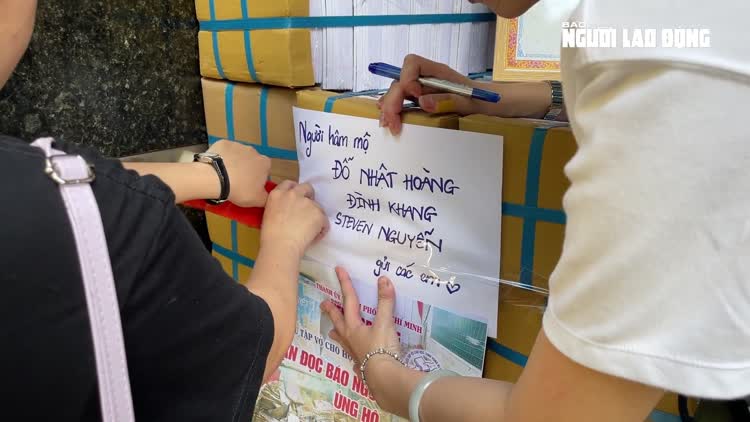 BÁO
NGƯỜI LAO ĐỘNG
Người hâm mộ
ĐỖ NHẬT HOÀNG
ĐÌNH KHANG
STEVEN NGUYỄN
gửi các em
THÀNH ỦY PHỐ CHÍ MINH
TẬP VỞ CHO HỌ
ẠN ĐỌC BÁO NG
ỦNG HỘ